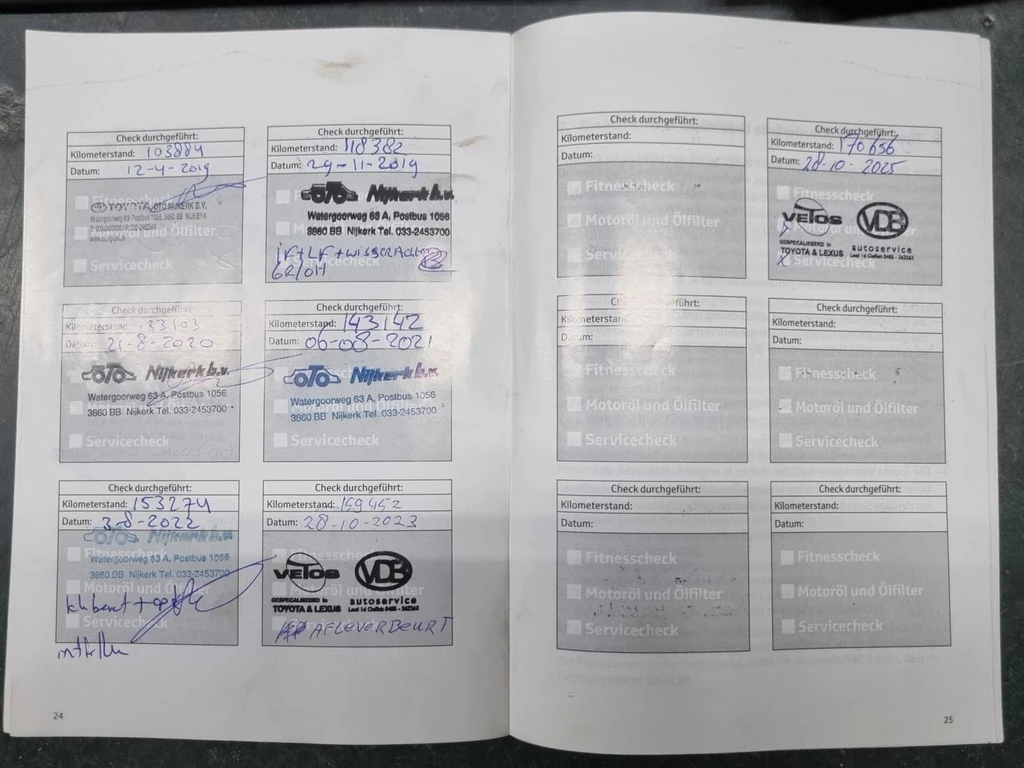 Check durchgeführt:
Kilometerstand: 103884
Datum: 12-4-2019
Fitnesscheck
TOYOTA OTO NIJKERK B.V.
Motoröl und Ölfilter
Servicecheck
Check durchgeführt:
Kilometerstand: 118382
Datum: 29-11-2019
OTO Nijkerk b.v.
Watergoorweg 63 A, Postbus 1056
3860 BB Nijkerk Tel. 033-2453700
GR/OH
Check durchgeführt:
Kilometerstand: 133103
Datum: 21-8-2020
OTO Nijkerk b.v.
Watergoorweg 63 A, Postbus 1056
3860 BB Nijkerk Tel. 033-2453700
Servicecheck
Check durchgeführt:
Kilometerstand: 143142
Datum: 06-08-2021
OTO Nijkerk b.v.
Watergoorweg 63 A, Postbus 1056
3860 BB Nijkerk Tel. 033-2453700
Motoröl und Ölfilter
Servicecheck
Check durchgeführt:
Kilometerstand: 153274
Datum: 3-8-2022
OTO Nijkerk b.v.
Fitnesscheck
Watergoorweg 63 A, Postbus 1056
3860 BB Nijkerk Tel. 033-2453700
Motoröl und Ölfilter
Servicecheck
Check durchgeführt:
Kilometerstand: 159452
Datum: 28-10-2023
Fitnesscheck
VETOS VDB
GESPECIALISEERD IN
TOYOTA & LEXUS
autoservice
Motoröl und Ölfilter
Servicecheck
AFLEVERBEURT
24
Check durchgeführt:
Kilometerstand:
Datum:
Fitnesscheck
Motoröl und Ölfilter
Servicecheck
Check durchgeführt:
Kilometerstand: 170656
Datum: 28-10-2025
Fitnesscheck
VETOS VDB
GESPECIALISEERD IN
TOYOTA & LEXUS
autoservice
Check durchgeführt:
Kilometerstand:
Datum:
Fitnesscheck
Motoröl und Ölfilter
Servicecheck
Check durchgeführt:
Kilometerstand:
Datum:
Fitnesscheck
Motoröl und Ölfilter
Servicecheck
Check durchgeführt:
Kilometerstand:
Datum:
Fitnesscheck
Motoröl und Ölfilter
Servicecheck
Check durchgeführt:
Kilometerstand:
Datum:
Fitnesscheck
Motoröl und Ölfilter
Servicecheck
25